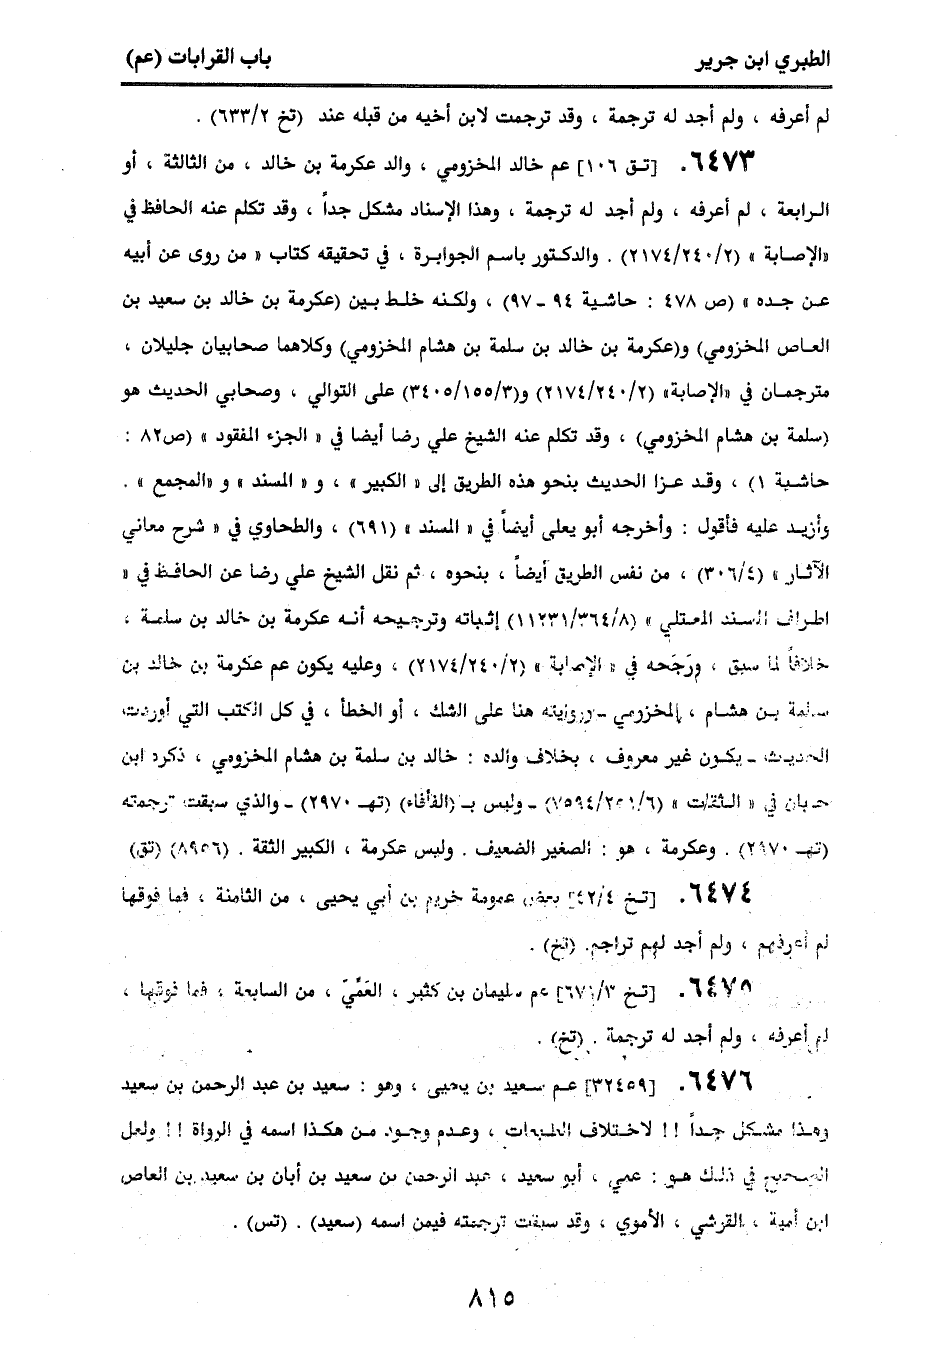 الطبري ابن جرير
باب القرابات (عم)
لم أعرفه ، ولم أجد له ترجمة ، وقد ترجمت لابن أخيه من قبله عند (تخ ٦٣٣/٢) .
٦٤٧٣. [تـق ١٠٦] عم خالد المخزومي ، والد عكرمة بن خالد ، من الثالثة ، أو
الـرابعة ، لم أعرفه ، ولم أجد له ترجمة ، وهذا الإسناد مشكل جداً ، وقد تكلم عنه الحافظ في
«الإصـابة » (٢١٧٤/٢٤٠/٢) . والدكـتور باسم الجوابـرة ، في تحقيقه كتاب « من روى عن أبيه
عـن جـده » (ص ٤٧٨ : حاشية ٩٤ ـ ٩٧) ، ولكنه خلط بـين (عكرمة بن خالد بن سعيد بن
العـاص المخزومي) و(عكرمة بن خالد بن سلمة بن هشام المخزومي) وكلاهما صحابيان جليلان ،
مترجمـان في «الإصابة» (٢١٧٤/٢٤٠/٢) و(٣٤٠٥/١٥٥/٣) على التوالي ، وصحابي الحديث هو
(سلمة بن هشام المخزومي) ، وقد تكلم عنه الشيخ علي رضا أيضا في « الجزء المفقود » (ص٨٢ :
حاشـية ١) ، وقـد عـزا الحديث بنحو هذه الطريق إلى « الكبير » ، و « المسند » و «المجمع » .
وأزيـد عليه فأقول : وأخرجه أبو يعلى أيضاً في « المسند » (٦٩١) ، والطحاوي في « شرح معاني
الآثـار » (٣٠٦/٤) ، من نفس الطريق أيضاً ، بنحوه ، ثم نقل الشيخ علي رضا عن الحافـظ في «
اطراف المسند المعتلي » (١١٢٣١/٣٦٤/٨) إثباته وترجيحه أنـه عكرمة بن خالد بن سلمة ،
خلافاً لما سبق ، ورجحه في « الإصابة » (٢١٧٤/٢٤٠/٢) ، وعليه يكون عم عكرمة بن خالد بن
سلمة بـن هشـام ، المخزومي ـ وروايته هنا على الشك ، أو الخطأ ، في كل الكتب التي أوردت
الحديث ـ يكـون غير معروف ، بخلاف والده : خالد بن سلمة بن هشام المخزومي ، ذكره ابن
حبان في « الثقات » ـ وليس بـ (الفأفاء) (تهـ ٢٩٧٠) ـ والذي سبقت ترجمته
(تهـ ٢٩٧٠) . وعكرمة ، هو : الصغير الضعيف . وليس عكرمة ، الكبير الثقة . (٨٩٥٦) (تق)
٦٤٧٤. [تـخ ٤٢/٤] بعض عمومة خريم بن أبي يحيى ، من الثامنة ، فما فوقها
لم أعرفهم ، ولم أجد لهم تراجم. (تخ) .
٦٤٧٥. [تـخ ٦٧١/٣] عم سليمان بن كثير ، العَمِّيّ ، من السابعة ، فما فوقها ،
لم أعرفه ، ولم أجد له ترجمة . (تخ) .
٦٤٧٦. [٣٢٤٥٩] عـم سعيد بن يحيى ، وهو : سعيد بن عبد الرحمن بن سعيد
وهـذا مشكل جـداً !! لاختلاف الطبعات ، وعدم وجـود مـن هكـذا اسمه في الرواة !! ولعل
الصحيح في ذلـك هـو : عمي ، أبو سعيد ، عبد الرحمن بن سعيد بن أبان بن سعيد بن العاص
ابن أمية ، القرشي ، الأموي ، وقد سبقت ترجمته فيمن اسمه (سعيد) . (تس) .
٨١٥